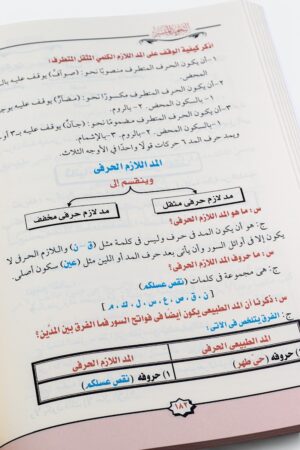 اذكر كيفية الوقف على المد اللازم الكلمي المثقل المتطرف؟
١-أن يكون الحرف المتطرف منصوبًا نحو: (صوآفَّ) يوقف عليه
المحض.
٢-أن يكون الحرف المتطرف مكسورًا نحو: (مضآرٍّ) يوقف عليه
١- بالسكون المحض. ٢- بالروم.
٣-أن يكون الحرف المتطرف مضمومًا نحو: (جآنٌّ) يوقف عليه بـ٣
١-بالسكون المحض. ٢-بالروم. ٣-بالإشمام.
ويمد حرف المد ٦ حركات قولًا واحدًا في الأوجه الثلاث.
المد اللازم الحرفى
وينقسم إلى
مد لازم حرفى مثقل
مد لازم حرفى مخفف
س: ما هو المد اللازم الحرفى؟
ج: هو أن يكون المد فى حرف وليس فى كلمة مثل (ق-ن) واللازم الحرفى لا
يكون إلا فى أوائل السور وأن يأتى بعد حرف المد أو اللين مثل (عين) سكون أصلى.
س: ما حروف المد اللازم الحرفى؟
ج: هى مجموعة فى كلمات (نقص عسلكم)
[ ن ، ق ، ص ، ع ، س ، ل ، ك ، م ]
س: ذكرنا أن المد الطبيعى يكون أيضًا فى فواتح السور فما الفرق بين المدَّين؟
ج: الفرق يتلخص فى الآتى:
المد الطبيعى الحرفى
المد اللازم الحرفى
١) حروفه (حى طهر)
١) حروفه (نقص عسلكم)
١٨٢